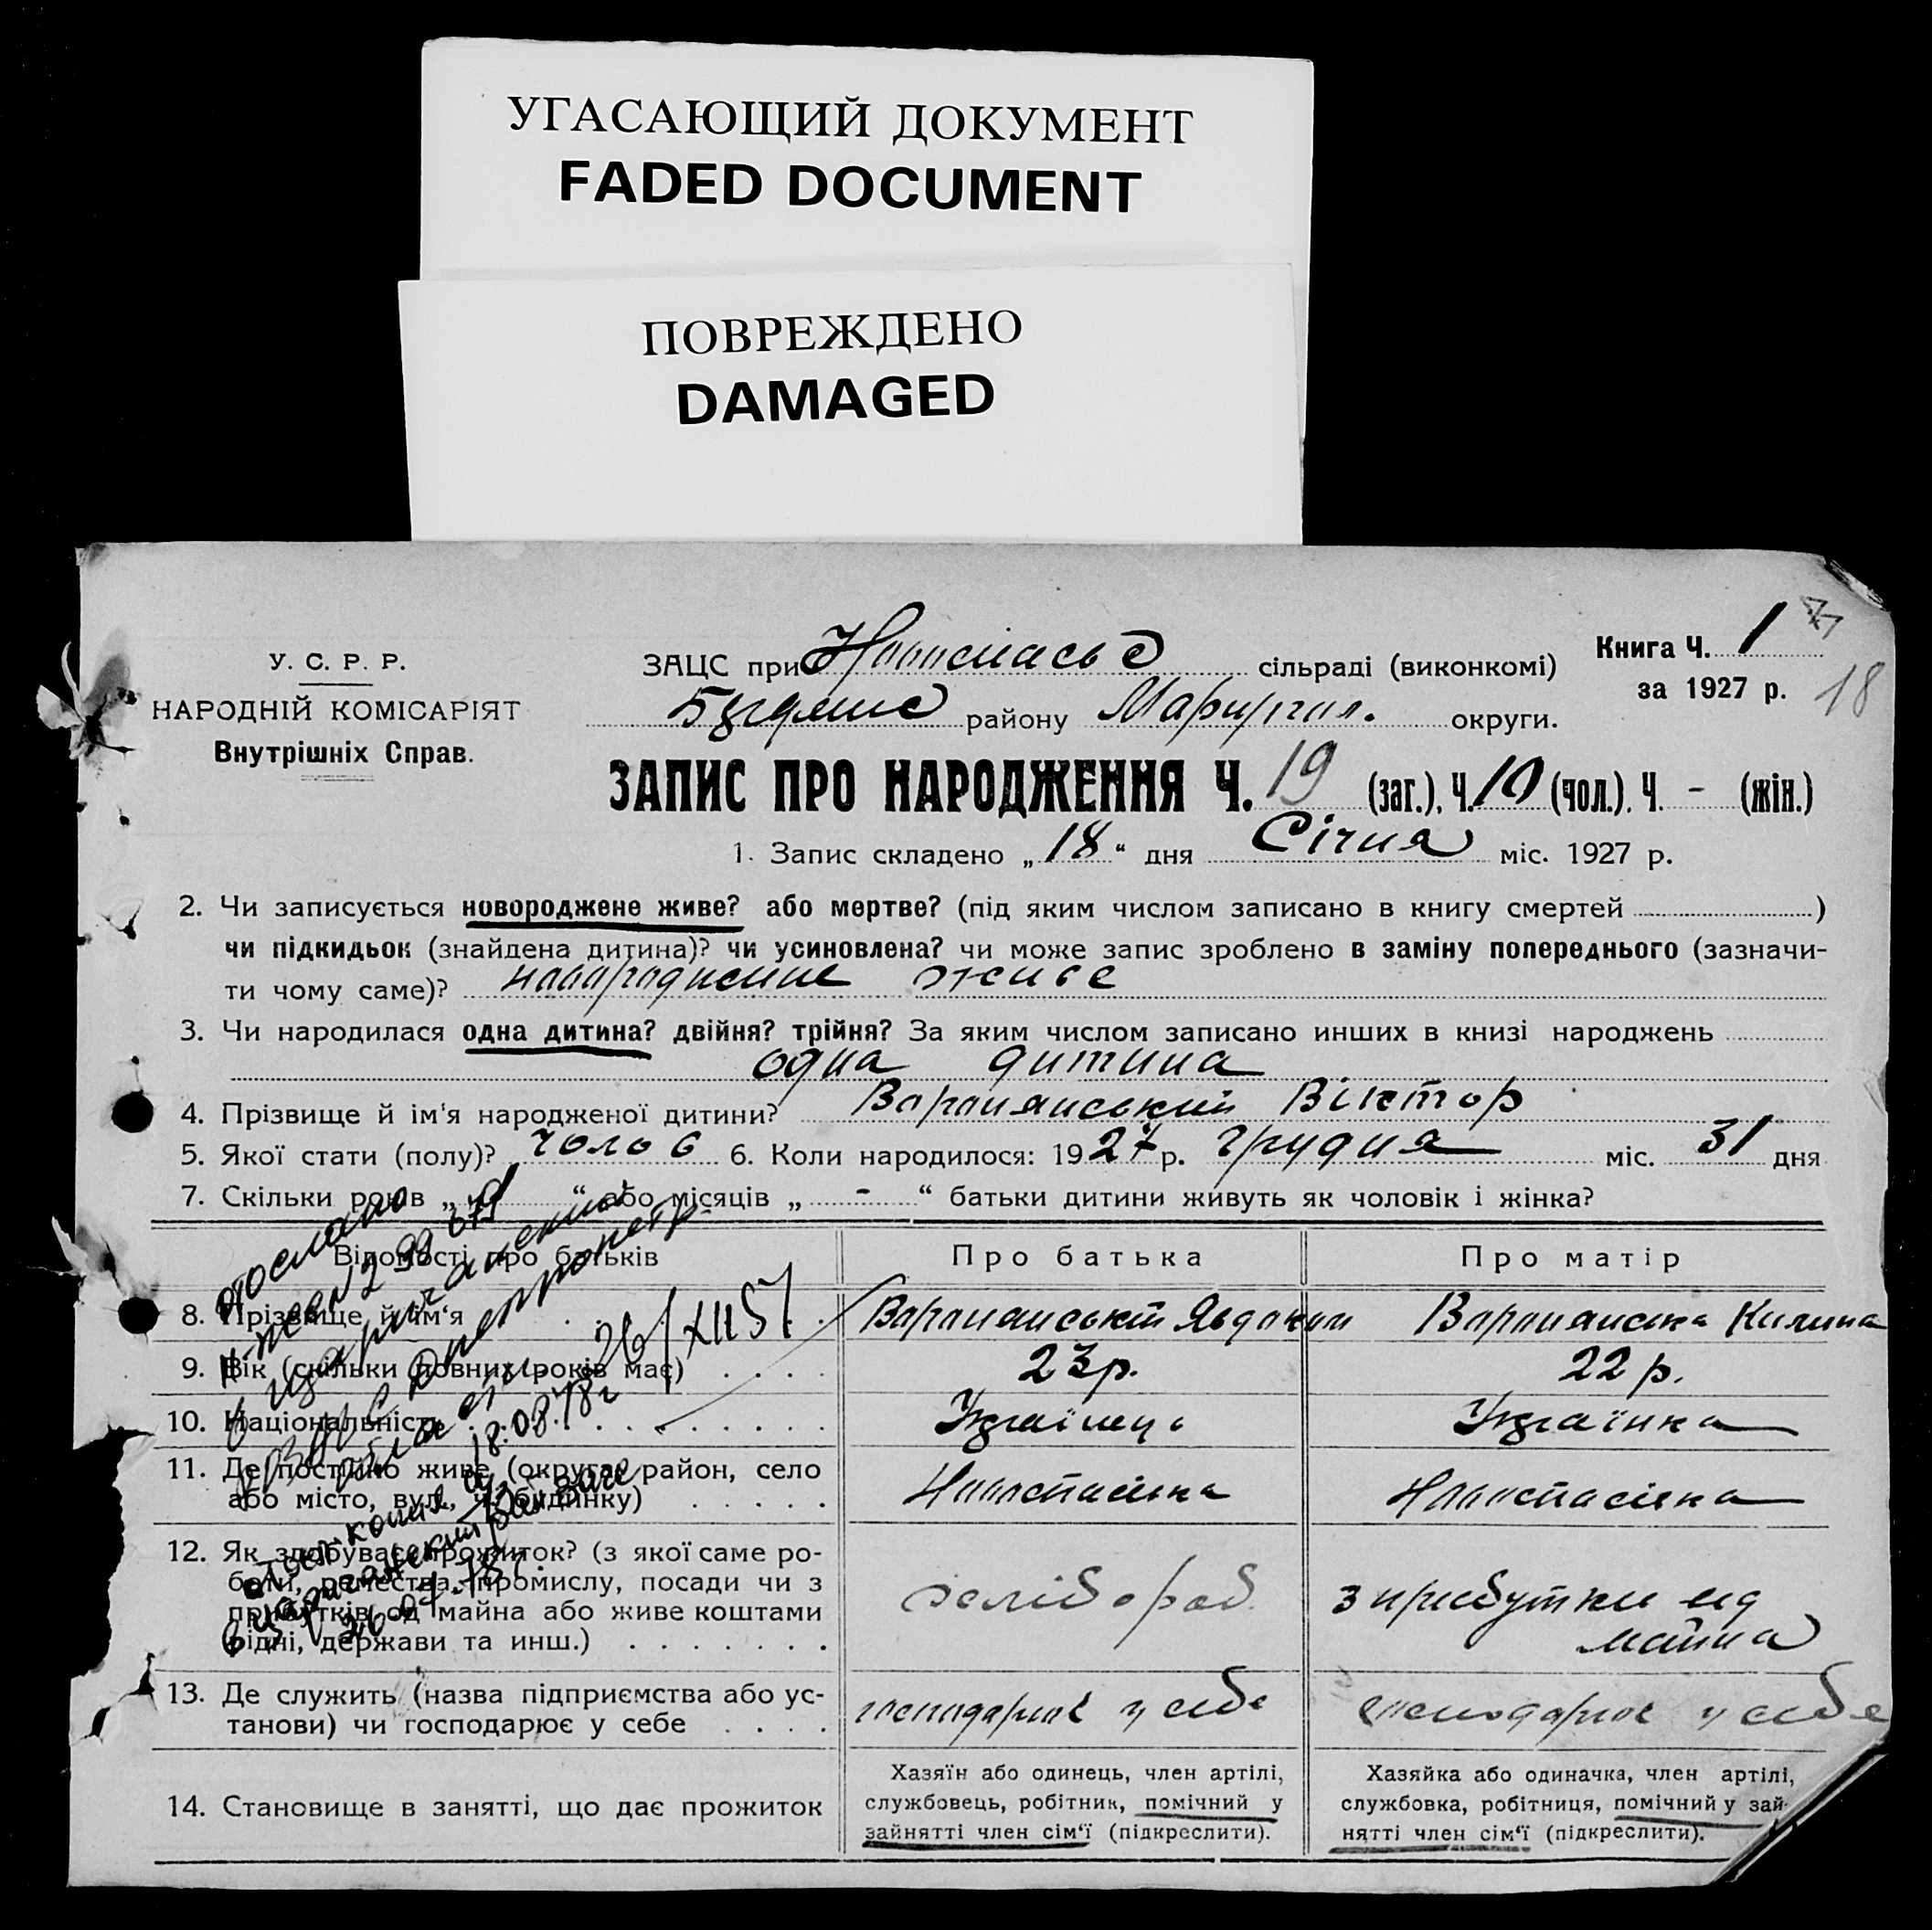 УГАСАЮЩИЙ ДОКУМЕНТ
FADED DOCUMENT
ПОВРЕЖДЕНО
DAMAGED
У. С. Р. Р.
НАРОДНІЙ КОМІСАРІЯТ
Внутрішніх Справ.
ЗАЦС при сільраді (виконкомі)
району Маріупол. округи.
Книга Ч. 1
за 1927 р.
18
ЗАПИС ПРО НАРОДЖЕННЯ Ч. 19 (заг.), Ч. 10 (чол.). Ч. - (жін.)
1. Запис складено „18“ дня Січня міс. 1927 р.
2. Чи записується новороджене живе? або мертве? (під яким числом записано в книгу смертей )
чи підкидьок (знайдена дитина)? чи усиновлена? чи може запис зроблено в заміну попереднього (зазначи-
ти чому саме)? живе
3. Чи народилася одна дитина? двійня? трійня? За яким числом записано инших в книзі народжень
одна дитина
4. Прізвище й ім'я народженої дитини? Віктор
5. Якої стати (полу)? чолов 6. Коли народилося: 1927 р. грудня міс. 31 дня
7. Скільки років „ “ або місяців „ - “ батьки дитини живуть як чоловік і жінка?
Відомості про батьків
Про батька
Про матір
8. Прізвище й ім'я
Явдоким
Килина
9. Вік (скільки повних років має)
23р.
22 р.
10. Національність
Українець
Українка
11. Де постійно живе (округа, район, село
або місто, вул., ч. будинку)
Новоспасівка
Новоспасівка
12. Як здобуває прожиток? (з якої саме ро-
боти, ремества, промислу, посади чи з
прибутків од майна або живе коштами
рідні, держави та инш.)
хлібороб.
з прибутки від
майна
13. Де служить (назва підприємства або ус-
танови) чи господарює у себе
господарює у себе
господарює у себе
14. Становище в занятті, що дає прожиток
Хазяїн або одинець, член артілі,
службовець, робітник, помічний у
зайнятті член сім'ї (підкреслити).
Хазяйка або одиначка, член артілі,
службовка, робітниця, помічний у зай-
нятті член сім'ї (підкреслити).
отослано
26/XII 57
18.08.78г